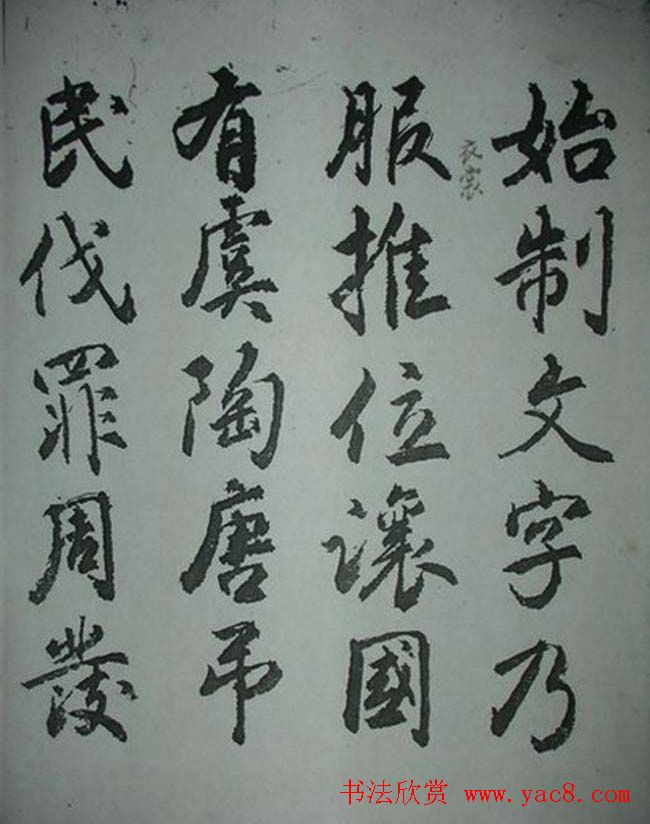 始制文字乃
服推位讓國
衣裳
有虞陶唐弔
民伐罪周發
书法欣赏 www.yac8.com